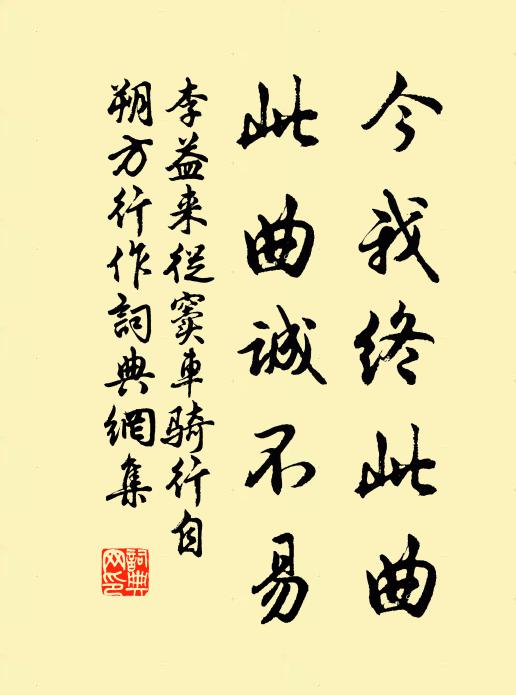 今我终此曲
此曲诚不易
李益来從窦車骑行自
朔方行作詞典網集
詞典网印